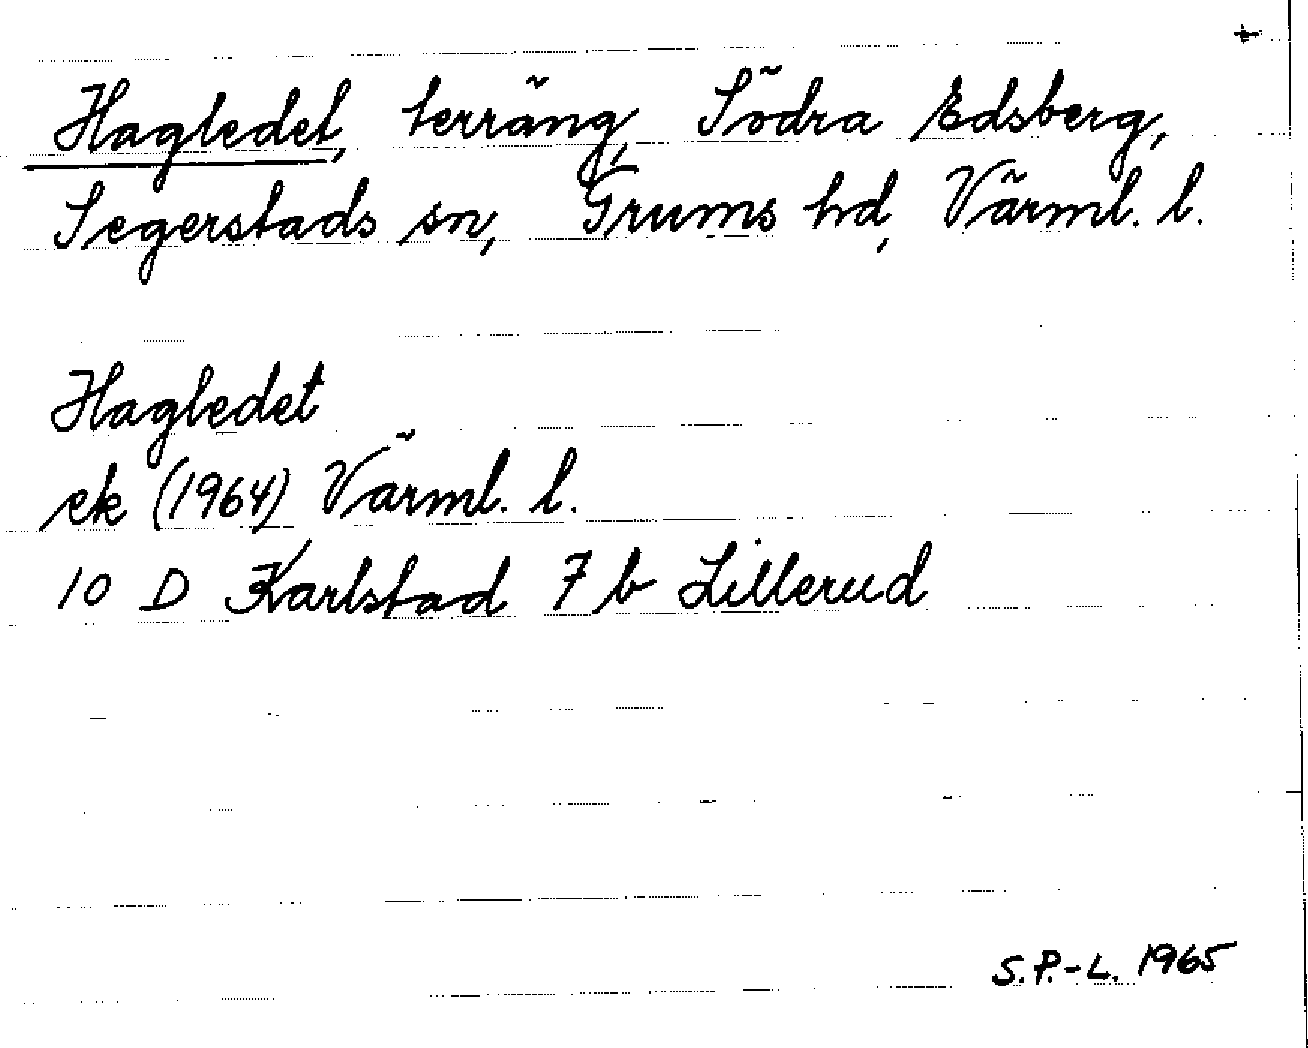 Hagledet, terräng, Södra Edsberg,
Segerstads sn, Grums hd, Värml. l.
Hagledet
ek (1964) Värml. l.
10 D Karlstad 7 b Lillerud
S.P.-L. 1965